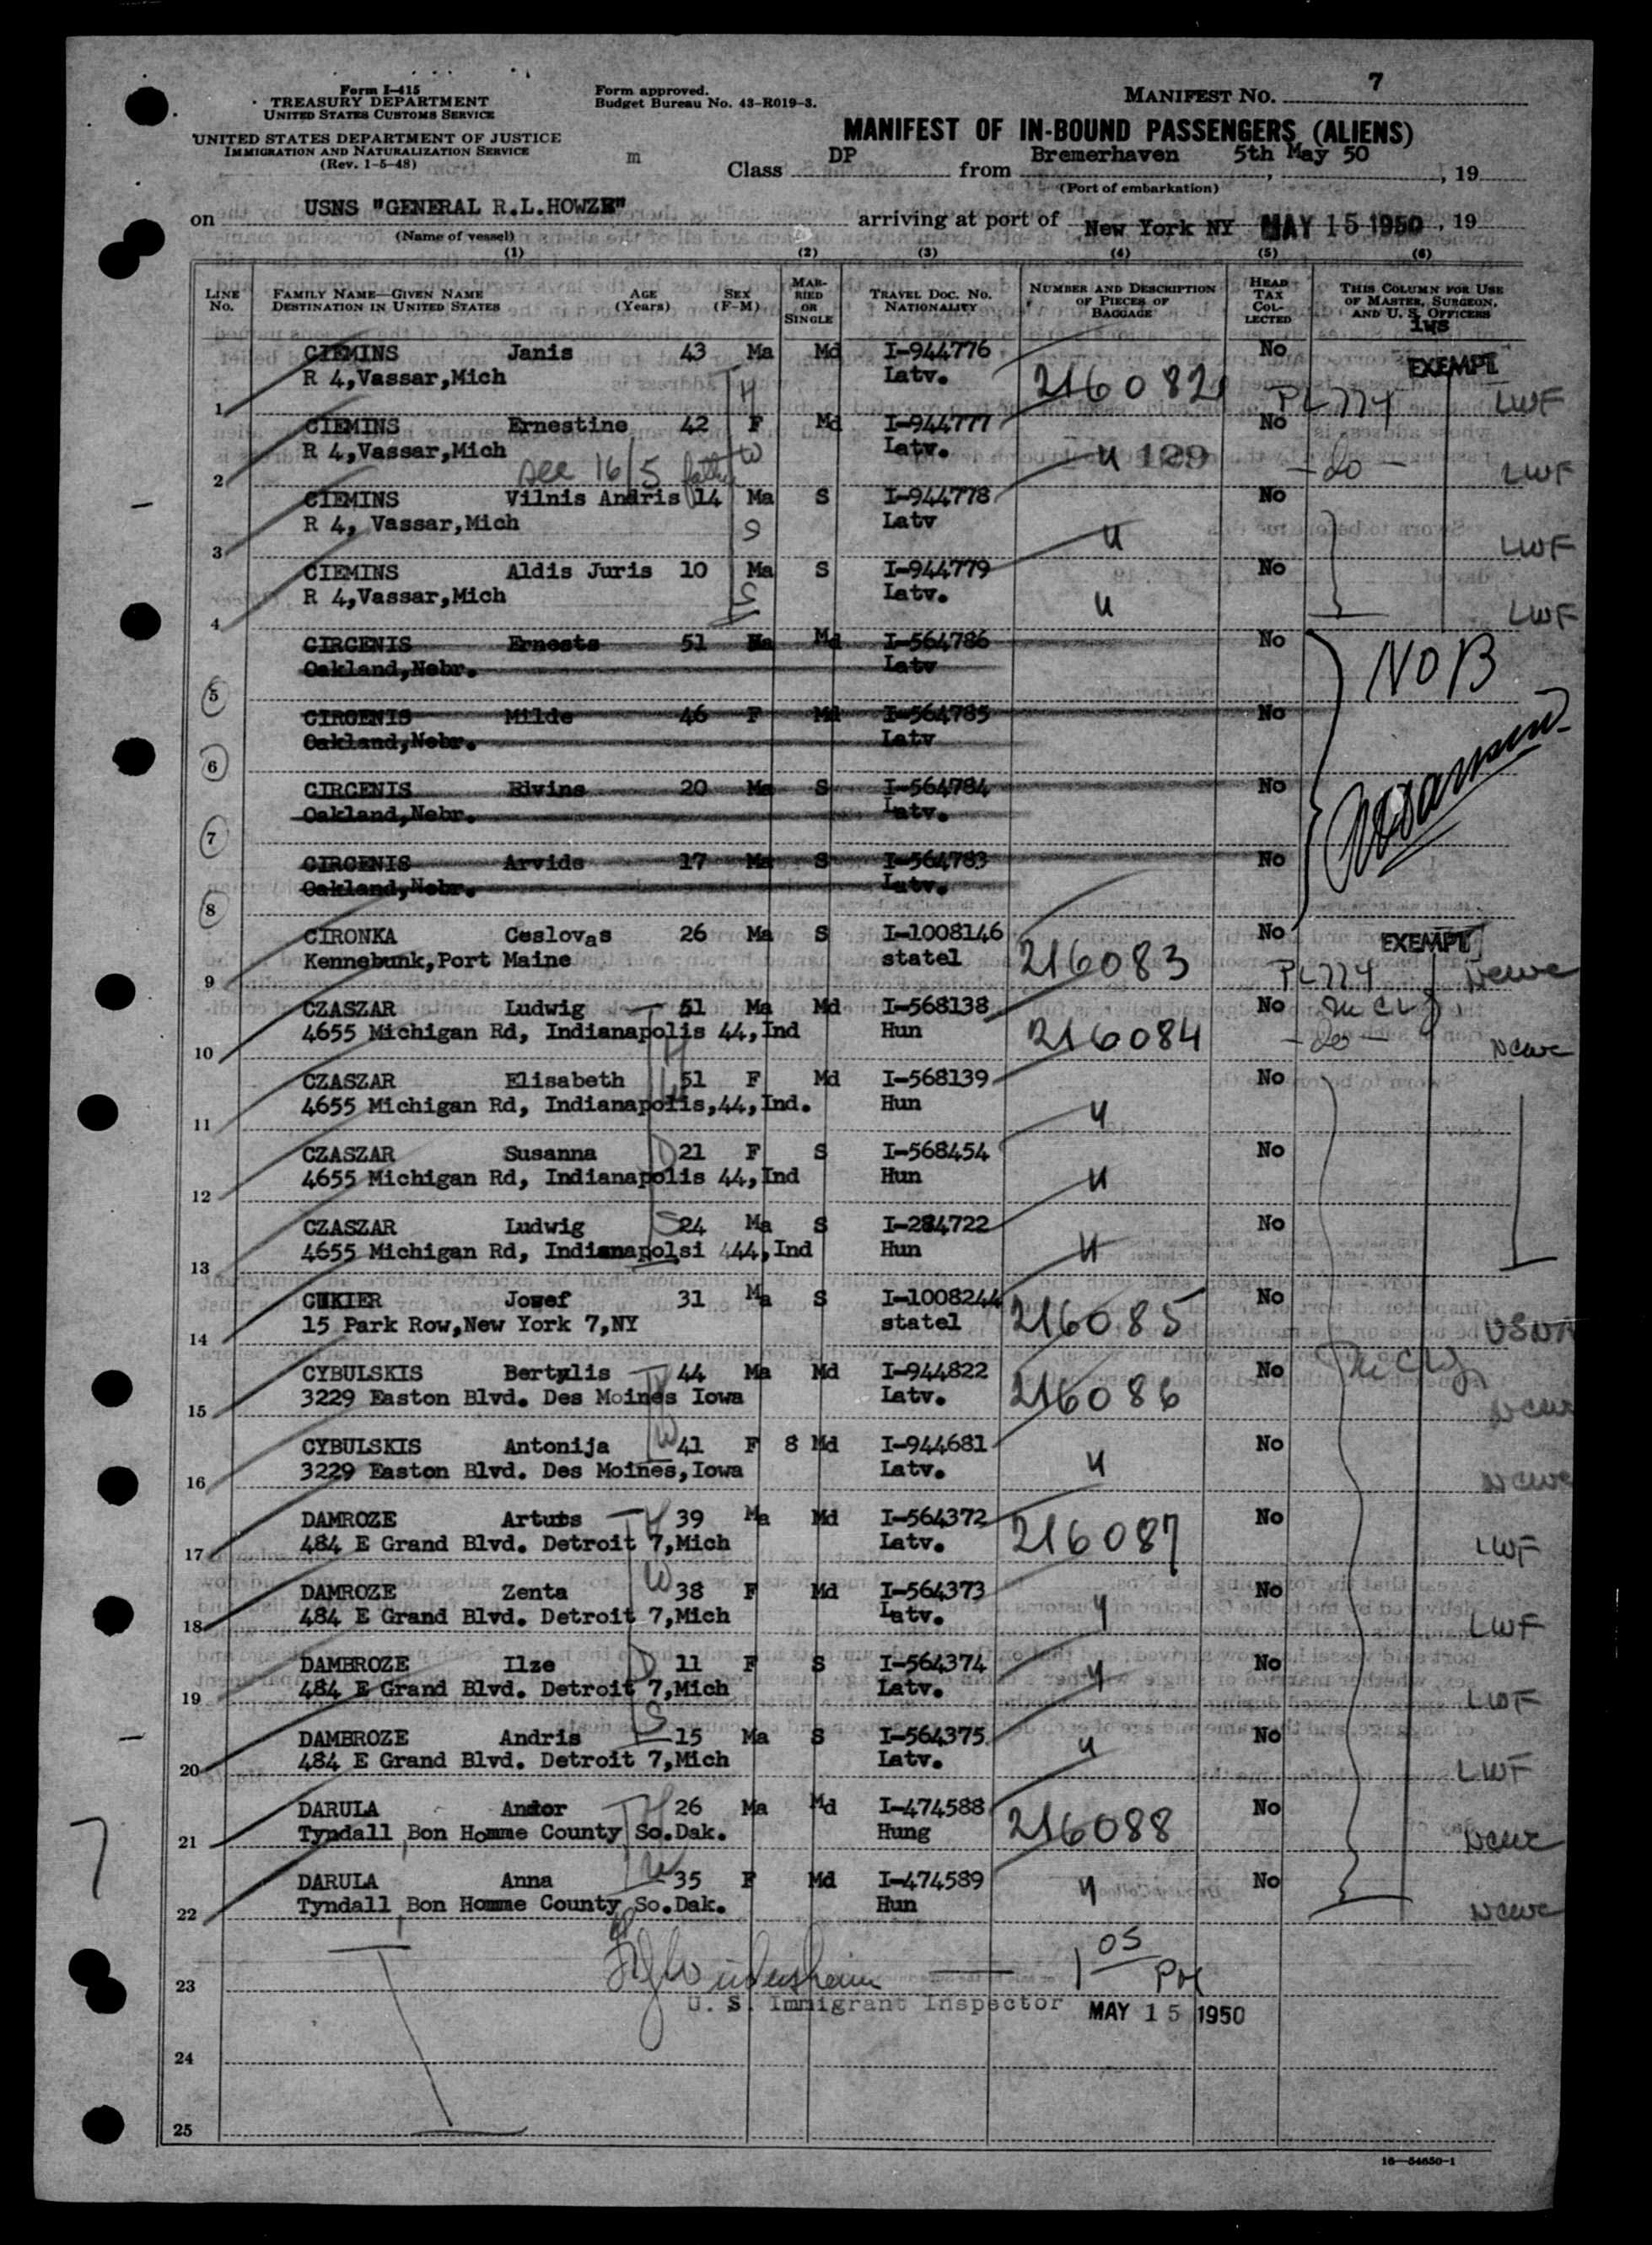 Form I-415
TREASURY DEPARTMENT
UNITED STATES CUSTOMS SERVICE
UNITED STATES DEPARTMENT OF JUSTICE
IMMIGRATION AND NATURALIZATION SERVICE
(Rev. 1-5-48)
Form approved.
Budget Bureau No. 43-R019-3.
MANIFEST NO. 7
MANIFEST OF IN-BOUND PASSENGERS (ALIENS)
m Class DP from Bremerhaven 5th May 50, 19
(Port of embarkation)
on USNS "GENERAL R.L.HOWZE" arriving at port of New York NY MAY 15 1950, 19
(Name of vessel)
(1) (2) (3) (4) (5) (6)
LINE No. FAMILY NAME—GIVEN NAME DESTINATION IN UNITED STATES AGE (Years) SEX (F-M) MARRIED OR SINGLE TRAVEL DOC. NO. NATIONALITY NUMBER AND DESCRIPTION OF PIECES OF BAGGAGE HEAD TAX COLLECTED THIS COLUMN FOR USE OF MASTER, SURGEON, AND U. S. OFFICERS
iws
CIEMINS Janis 43 Ma Md I-944776 No EXEMPT
R 4,Vassar,Mich Latv. 216082 PL 774 LWF
1
CIEMINS Ernestine 42 F Md I-944777 No
R 4,Vassar,Mich Latv. " 129 -do- LWF
2 see 16/5 father
CIEMINS Vilnis Andris 14 Ma S I-944778 No
R 4, Vassar,Mich Latv " LWF
3
CIEMINS Aldis Juris 10 Ma S I-944779 No
R 4,Vassar,Mich Latv. " LWF
4
CIRCENIS Ernests 51 Ma Md I-564786 No NOB
Oakland,Nebr. Latv
5
CIRCENIS Milde 46 F Md I-564785 No
Oakland,Nebr. Latv
6
CIRCENIS Elvins 20 Ma S I-564784 No
Oakland,Nebr. Latv.
7
CIRCENIS Arvids 17 Ma S I-564783 No
Oakland,Nebr. Latv.
8
CIRONKA Ceslovas 26 Ma S I-1008146 No EXEMPT
Kennebunk,Port Maine statel 216083 PL 774 NCWC
9
CZASZAR Ludwig 51 Ma Md I-568138 No
4655 Michigan Rd, Indianapolis 44,Ind Hun 216084 -do- NCWC
10
CZASZAR Elisabeth 51 F Md I-568139 No
4655 Michigan Rd, Indianapolis,44,Ind. Hun "
11
CZASZAR Susanna D 21 F S I-568454 No
4655 Michigan Rd, Indianapolis 44,Ind Hun "
12
CZASZAR Ludwig S 24 Ma S I-284722 No
4655 Michigan Rd, Indianapolsi 444,Ind Hun "
13
CUKIER Josef 31 Ma S I-1008244 No
15 Park Row,New York 7,NY statel 216085 USNA
14
CYBULSKIS Bertylis 44 Ma Md I-944822 No
3229 Easton Blvd. Des Moines Iowa Latv. 216086 NCWC
15
CYBULSKIS Antonija W 41 F 8 Md I-944681 No
3229 Easton Blvd. Des Moines,Iowa Latv. " NCWC
16
DAMROZE Artuts H 39 Ma Md I-564372 No
484 E Grand Blvd. Detroit 7,Mich Latv. 216087 LWF
17
DAMROZE Zenta W 38 F Md I-564373 No
484 E Grand Blvd. Detroit 7,Mich Latv. " LWF
18
DAMBROZE Ilze D 11 F S I-564374 No
484 E Grand Blvd. Detroit 7,Mich Latv. " LWF
19
DAMBROZE Andris S 15 Ma S I-564375 No
484 E Grand Blvd. Detroit 7,Mich Latv. " LWF
20
DARULA Andor H 26 Ma Md I-474588 No
Tyndall Bon Homme County So.Dak. Hung 216088 NCWC
21
DARULA Anna W 35 F Md I-474589 No
Tyndall Bon Homme County So.Dak. Hun " NCWC
22
1 05 PM
23 U. S. Immigrant Inspector MAY 15 1950
24
25
16—54650-1